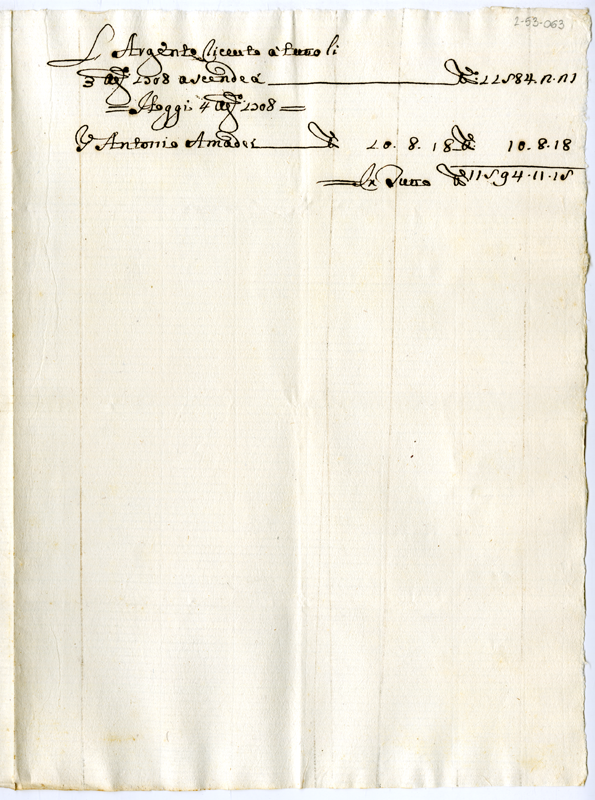 2-53-063
L Argento Riceuto à tutto li
3 Agto 1708 ascende à 11584.2.21
Hoggi 4 Agto 1708
P Antonio Amadei 10.8.18 10.8.18
In Tutto 11594.11.15